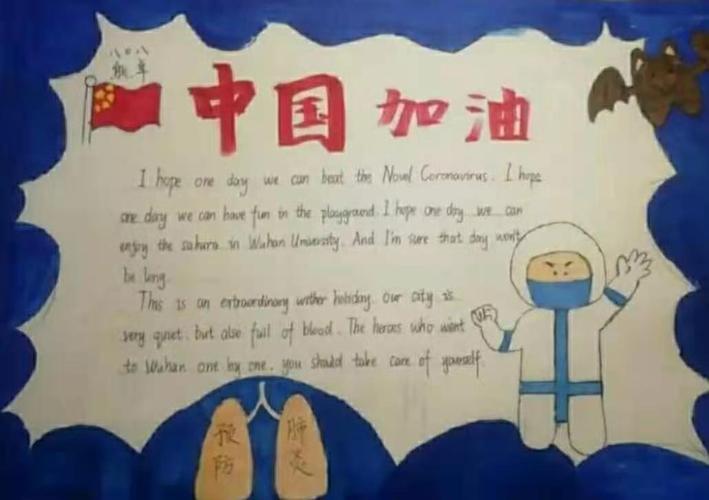 八〇八
中国加油
I hope one day we can beat the Novel Coronavirus. I hope
one day we can have fun in the playground. I hope one day we can
enjoy the sakura in Wuhan University. And I'm sure that day won't
be long.
This is an extraordinary winter holiday. Our city is
very quiet, but also full of blood. The heroes who went
to Wuhan one by one, you should take care of yourself.
预防
肺炎